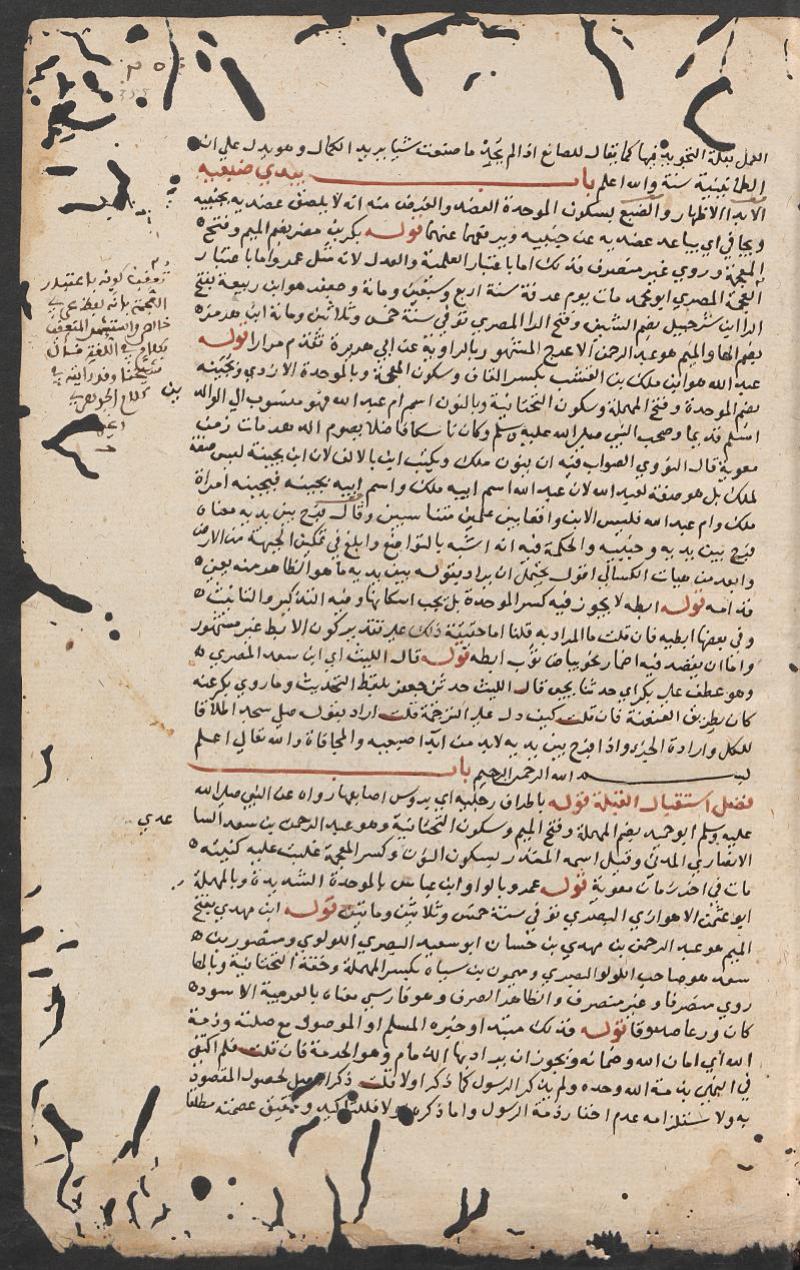 العمل بتلك التجوية فيها كما يقال للصانع اذا لم يجد ما صنعت شيا يريد الكمال وهو يدل على ان
الطمانينة سنة والله اعلم باب يبدي ضبعيه
الابدا الاظهار والضبع بسكون الموحدة العضد والغرض منه انه لا يلصق عضديه بجنبيه
ويجافي اي يباعد عضديه عن جنبيه ويرفعهما عنهما قوله بكر بن مضر بضم الميم وفتح
المعجمة وروي غير منصرف قد لك اما باعتبار العلمية والعدل لانه مثل عمر واما باعتبار
العجمة المصري ابو محمد مات يوم عرفة سنة اربع وسبعين ومائة وجعفر هو ابن ربيعة بفتح
الرا ابن شرحبيل بضم الشين وفتح الرا المصري توفي سنة خمس وثلاثين ومائة ابن هرمز
بضم الها والميم هو عبد الرحمن الاعرج المشهور بالرواية عن ابي هريرة تقدم مرارا قوله
عبد الله هو ابن ملك بن القشب بكسر القاف وسكون المعجمة وبالموحدة الازدي وبحينه
بضم الموحدة وفتح المهملة وسكون التحتانية وبالنون اسم ام عبد الله فهو منسوب الى الوالدة
اسلم قديما وصحب النبي صلى الله عليه وسلم وكان ناسكا فاضلا يصوم الدهر مات زمن
معوية قال النووي الصواب فيه ان ينون ملك ويكتب ابن بالالف لان ابن بحينة ليس صفة
لملك بل هو صفة لعبد الله لان عبد الله اسم ابيه ملك واسم امه بحينه فبحينه امراة
ملك وام عبد الله فليس الابن واقعا بين علمين متناسبين وقال فرج بين يديه معناه
فرج بين يديه وجنبيه والحكمة فيه انه اشبه بالتواضع وابلغ في تمكين الجبهة من الارض
وابعد من هيات الكسالى اقول يحتمل ان يراد بقوله بين يديه ما هو الظاهر منه يعني
قدامه قوله ابطه لا يجوز فيه كسر الموحدة بل يجب اسكانها وفيه التذكير والتانيث
وفي بعضها ابطيه فان قلت ما المراد به قلنا اما حقيقية ذلك على تقدير كون الابط غير مستور
واما ان يقصد فيه اضمار نحو بياض ثوب ابطه قوله قال الليث اي ابن سعد المصري
وهو عطف على بكر اي حدثنا يحيى قال الليث حدثني جعفر بلفظ التحديث وما روي بكر عنه
كان بطريق العنعنة فان قلت كيف دل على الترجمة قلت اراد بقوله صلى سجد اطلاقا
للكل وارادة الجزء واذا فرج بين يديه لابد من ابدا ضبعيه والمجافاة والله تعالى اعلم
بسم الله الرحمن الرحيم باب
فضل استقبال القبلة قوله باطراف رجليه اي بروس اصابعها رواه عن النبي صلى الله
عليه وسلم ابو حميد بضم المهملة وفتح الميم وسكون التحتانية وهو عبد الرحمن بن سعد السا
عدي
الانصاري المدني وقيل اسمه المنذر بسكون النون وكسر المعجمة غلبت عليه كنيته
مات في اخر زمان معوية قوله عمرو بالواو ابن عباس بالموحدة الشديدة وبالمهملة
ابو عثمن الاهوازي البصري توفي سنة خمس وثلاثين ومايتين قوله ابن مهدي بفتح
الميم هو عبد الرحمن بن مهدي بن حسان ابو سعيد البصري اللولوي ومنصور بن
سعد هو صاحب اللولو البصري وميمون بن سياه بكسر المهملة وخفة التحتانية وبالها
روي منصرفا وغير منصرف والظاهر الصرف وهو فارسي معناه بالعربية الاسود
كان ورعا صدوقا قوله فذلك مبتدا وخبره المسلم او الموصول مع صلته وذمة
الله اي امان الله وضمانه ويجوز ان يراد بها الذمام وهو الحرمة فان قلت فلم اكتفى
في النهي بذمة الله وحده ولم يذكر الرسول كما ذكر اولا قلت ذكر الاصل لحصول المقصود
به ولاستلزامه عدم اخفار ذمة الرسول واما ذكره اولا فللتاكيد وتحقيق عصمته مطلقا